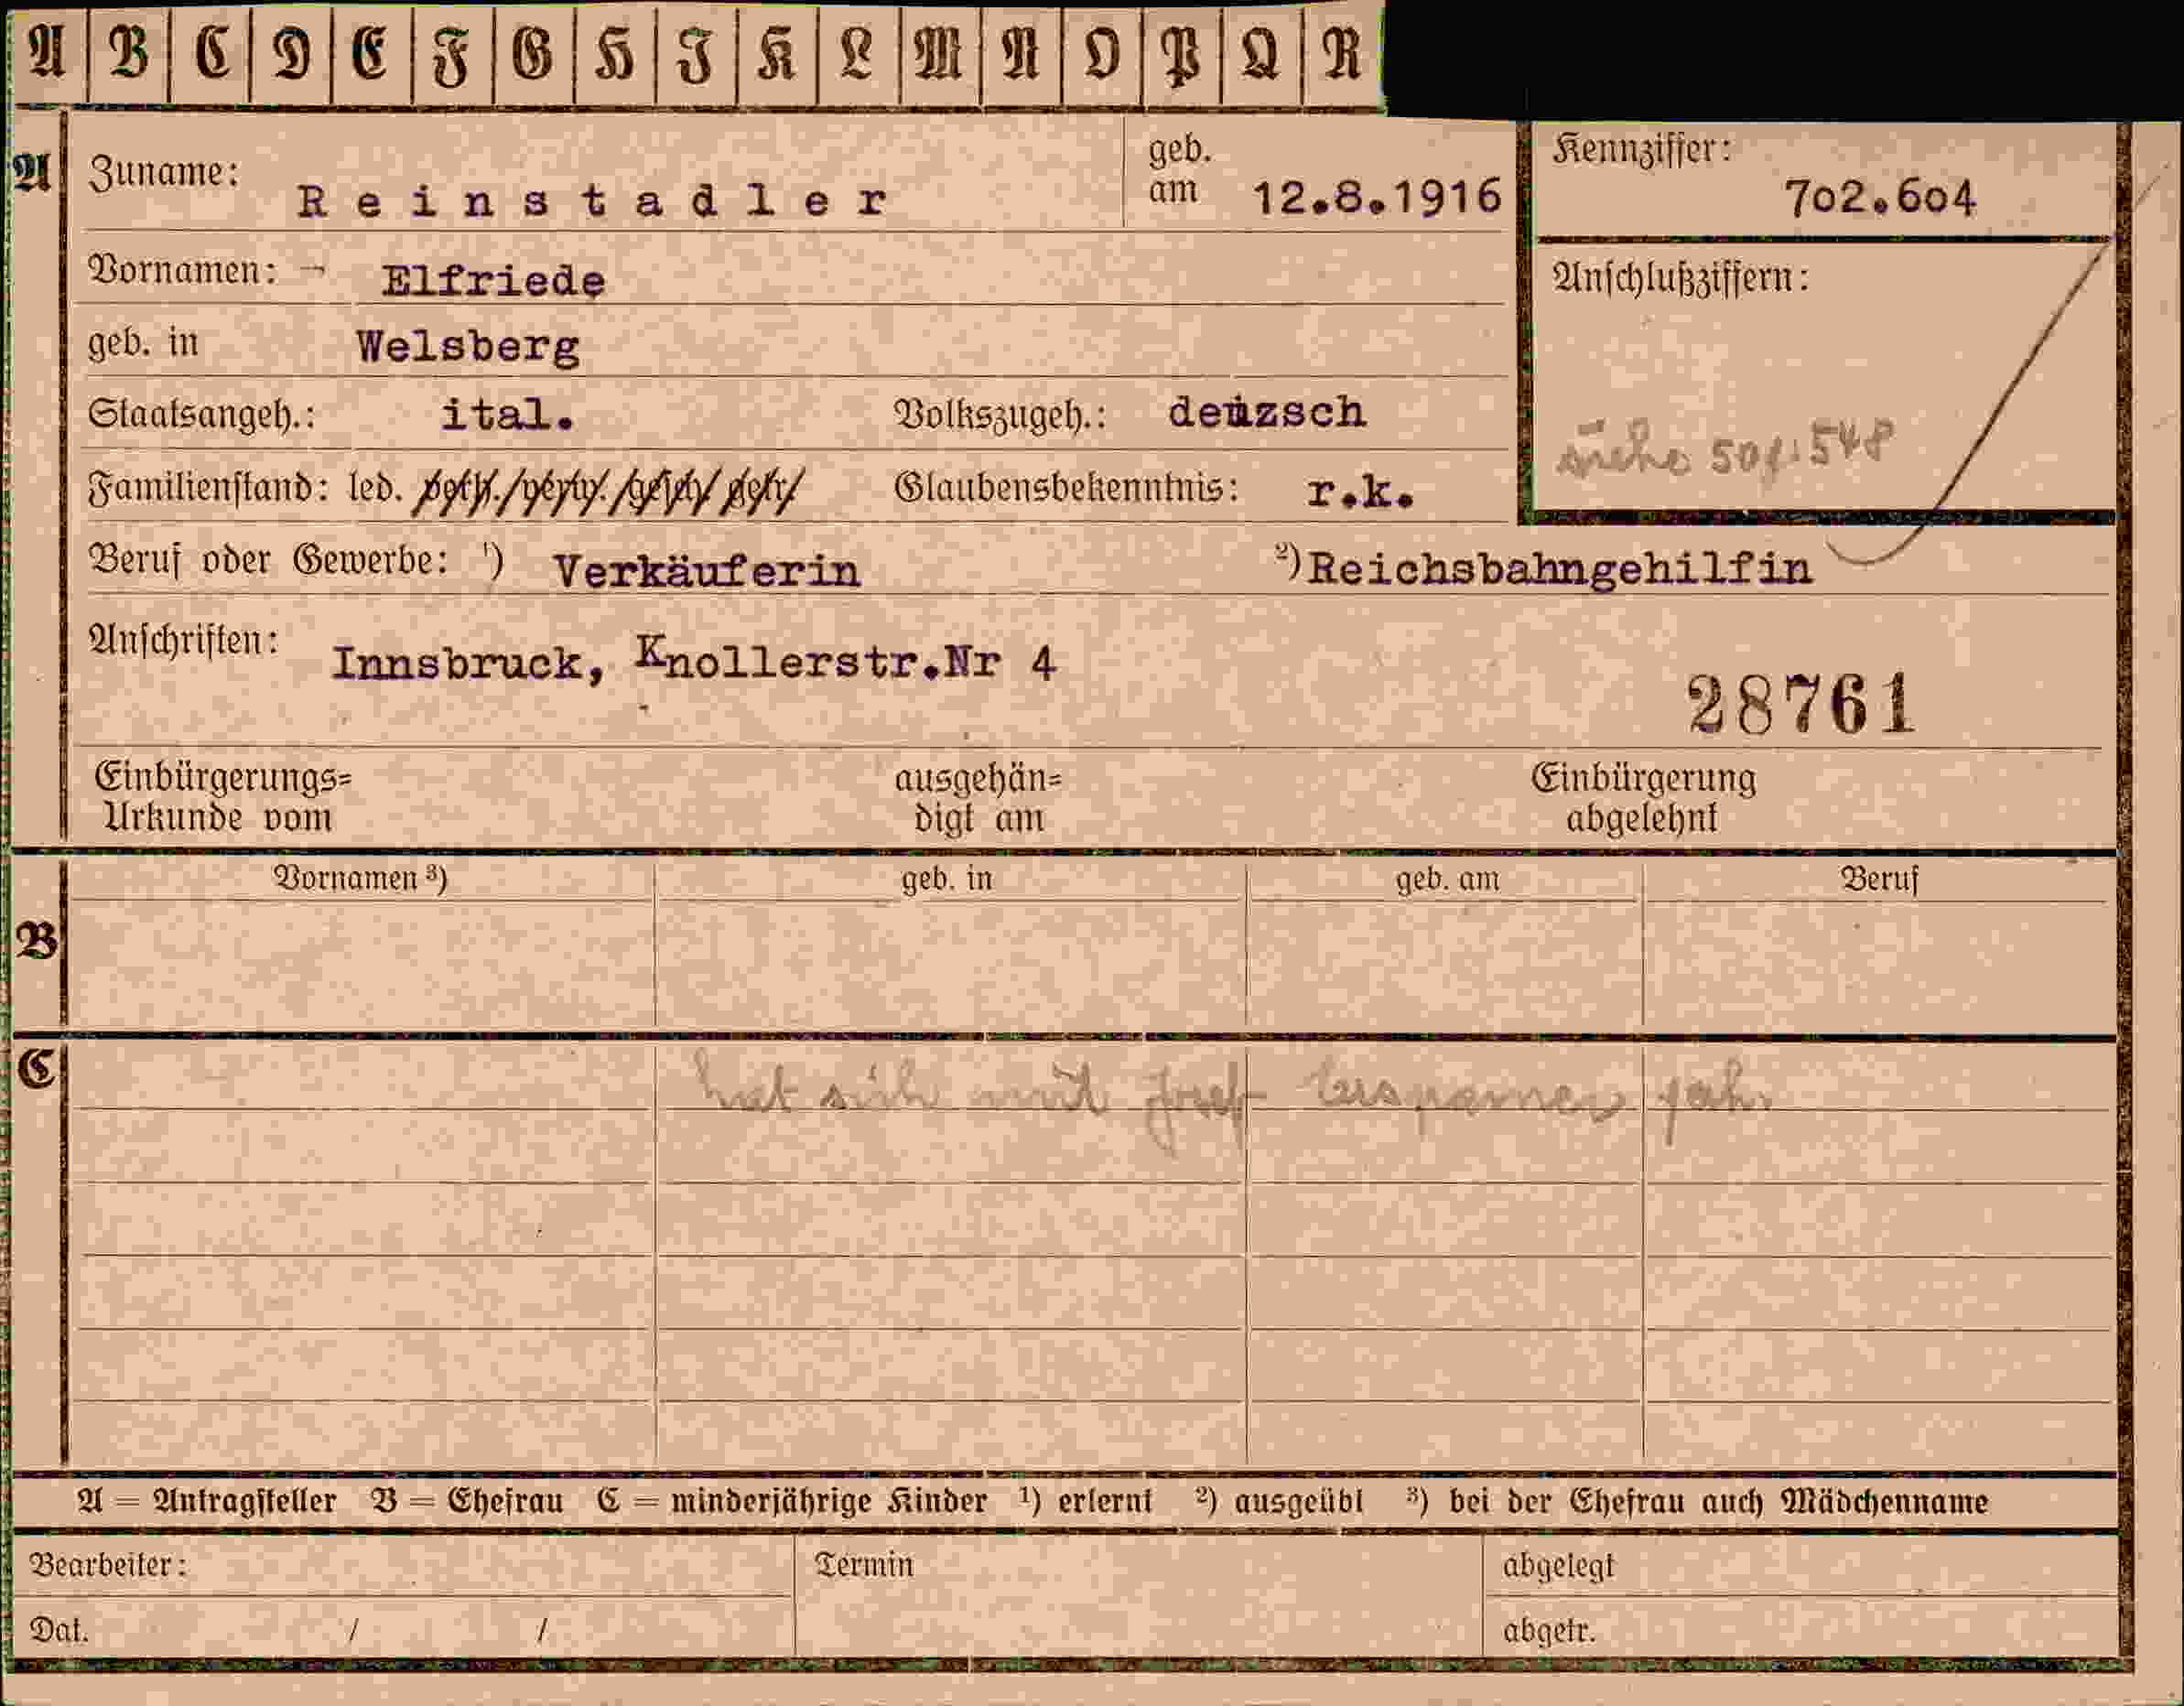 A B C D E F G H I K L M N O P Q R
A Zuname: Reinstadler geb. am 12.8.1916 Kennziffer: 702.604
Vornamen: Elfriede Anschlußziffern:
geb. in Welsberg
Staatsangeh.: ital. Volkszugeh.: deuzsch siehe 501.548
Familienstand: led. Glaubensbekenntnis: r.k.
Beruf oder Gewerbe: ¹) Verkäuferin ²) Reichsbahngehilfin
Anschriften: Innsbruck, Knollerstr.Nr 4
28761
Einbürgerungs= ausgehän= Einbürgerung
Urkunde vom digt am abgelehnt
Vornamen ³) geb. in geb. am Beruf
B
C hat sich mit Josef
A = Antragsteller B = Ehefrau C = minderjährige Kinder ¹) erlernt ²) ausgeübt ³) bei der Ehefrau auch Mädchenname
Bearbeiter: Termin abgelegt
Dat. / / abgetr.